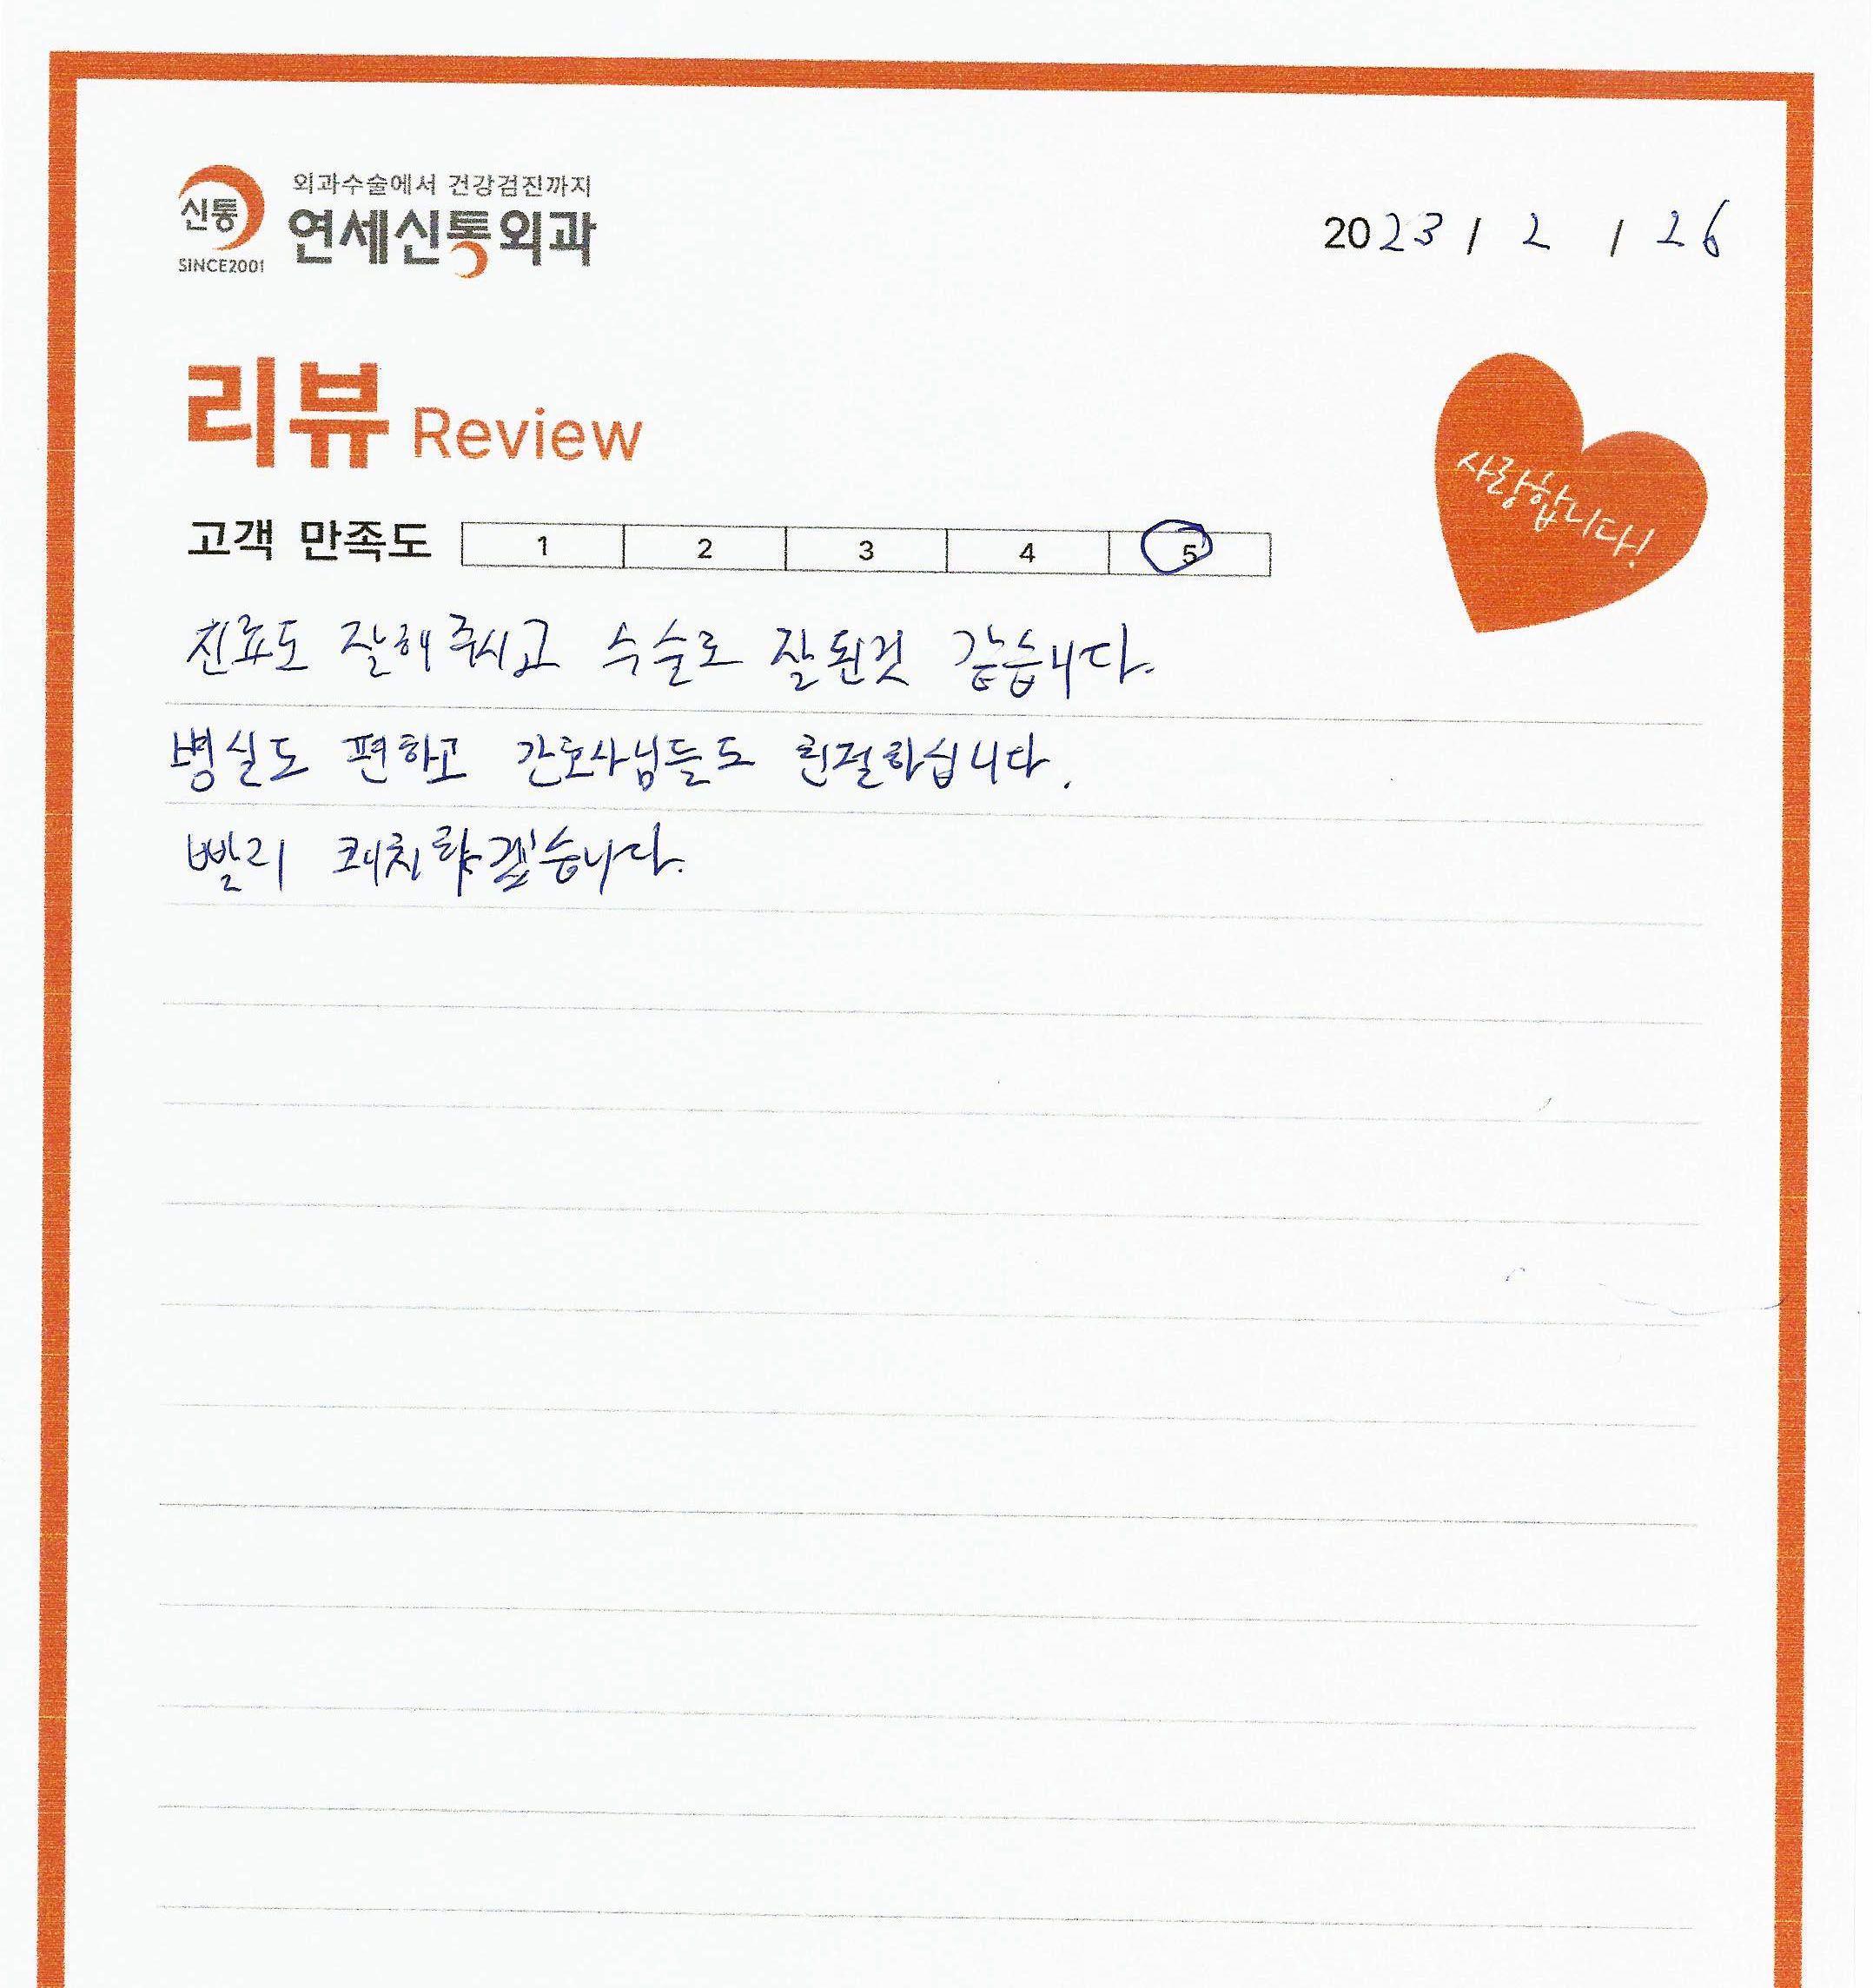 신통
SINCE2001
외과수술에서 건강검진까지
연세신통외과
2023 / 2 / 26
리뷰 Review
사랑합니다!
고객 만족도 1 2 3 4 5
진료도 잘해주시고 수술도 잘된것 같습니다.
병실도 편하고 간호사님들도 친절하십니다.
빨리 쾌치하겠습니다.